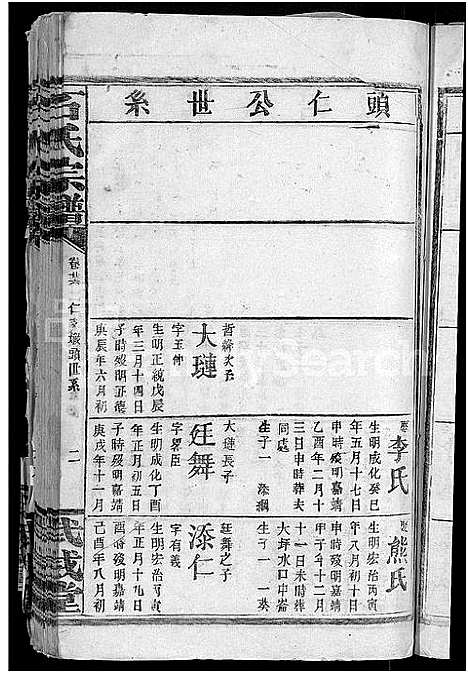 頭仁公世系
哲綸次子
大璉
字玉伸
生明正統戊辰
年三月十四日
子時歿明正德
庚辰年六月初
娶李氏
生明成化癸巳
年五月十七日
申時歿明嘉靖
乙酉年二月十
三日申時葬夫
同處
生子一 添
大璉長子
廷舞
字畧臣
生明成化丁酉
年正月初五日
子時歿明嘉靖
庚戌年十一月
娶熊氏
生明宏治丙寅
年八月初十日
申時歿明嘉靖
甲子年十二月
十一日未時葬
大坪水口中崙
生子一 一英
廷舞之子
添仁
字有義
生明宏治丙寅
年正月十九日
酉時歿明嘉靖
己酉年八月初
石氏宗譜
卷廿六 仁 頭世系
二
武威堂